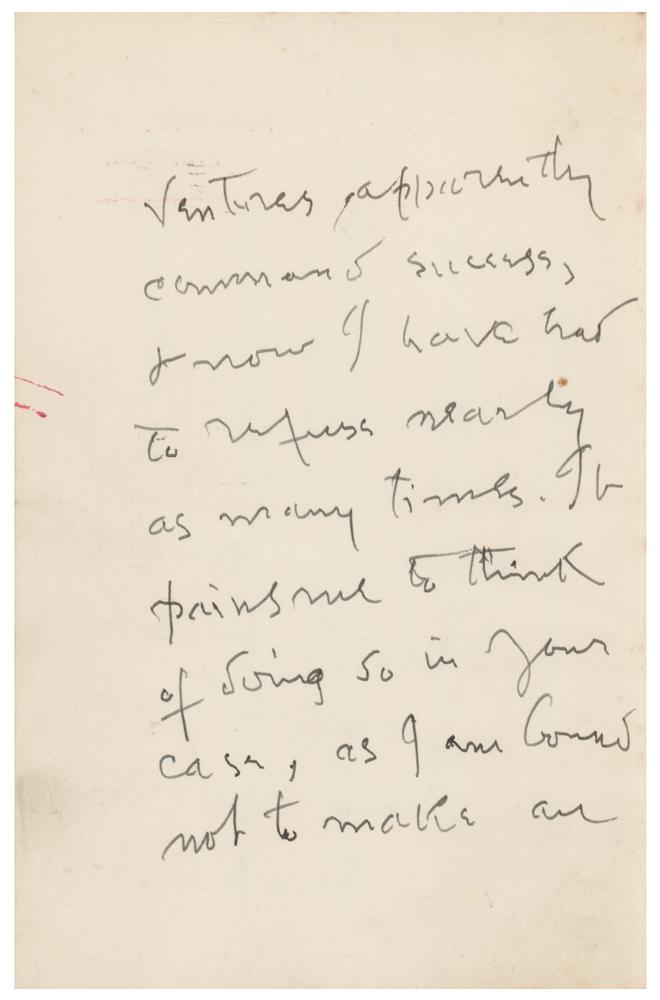 ventures apparently
command success,
& now I have had
to refuse nearly
as many times. It
pains me to think
of doing so in your
case, as I am bound
not to make an